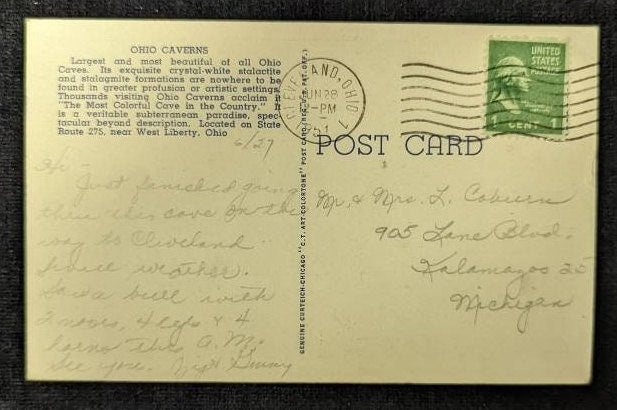 OHIO CAVERNS
Largest and most beautiful of all Ohio
Caves. Its exquisite crystal-white stalactite
and stalagmite formations are nowhere to be
found in greater profusion or artistic settings.
Thousands visiting Ohio Caverns acclaim it
"The Most Colorful Cave in the Country." It
is a veritable subterranean paradise, spec-
tacular beyond description. Located on State
Route 275, near West Liberty, Ohio
6/27
Hi,
Just finished going
thru this cave on the
way to Cleveland
weather.
Saw a bull with
2 noses, 4 legs & 4
horns this A.M.
See you. Ginny
GENUINE CURTEICH-CHICAGO "C.T. ART-COLORTONE" POST CARD (REG. U.S. PAT. OFF.)
CLEVELAND, OHIO 1
JUN 28
-PM
UNITED
STATES
POSTAGE
1 CENT 1
POST CARD
Mr. & Mrs. L. Coburn
905 Lane Blvd.
Kalamazoo 25
Michigan